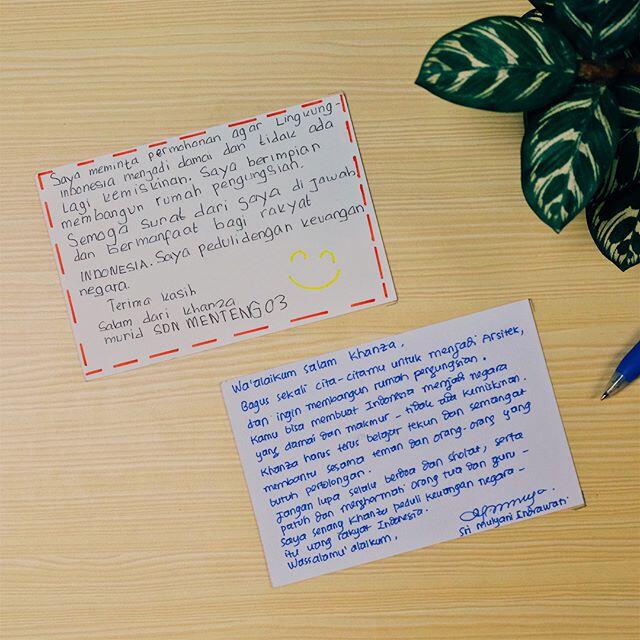 Saya meminta permohonan agar Lingkung-
INDONESIA menjadi damai dan tidak ada
Lagi kemiskinan. Saya berimpian
membangun rumah pengungsian.
Semoga surat dari saya di jawab
dan bermanfaat bagi rakyat
INDONESIA. Saya peduli dengan keuangan
negara.
Terima kasih
salam dari khanza
murid SDN MENTENG 03
Wa'alaikum salam Khanza,
Bagus sekali cita-citamu untuk menjadi Arsitek,
dan ingin membangun rumah pengungsian.
Kamu bisa membuat Indonesia menjadi negara
yang damai dan makmur - tidak ada kemiskinan.
Khanza harus terus belajar tekun dan semangat
membantu sesama teman dan orang-orang yang
butuh pertolongan.
Jangan lupa selalu berdoa dan sholat, serta
patuh dan menghormati orang tua dan guru-
Saya senang Khanza peduli keuangan negara-
itu uang rakyat Indonesia.
Wassalamu'alaikum,
Sri Mulyani Indrawati